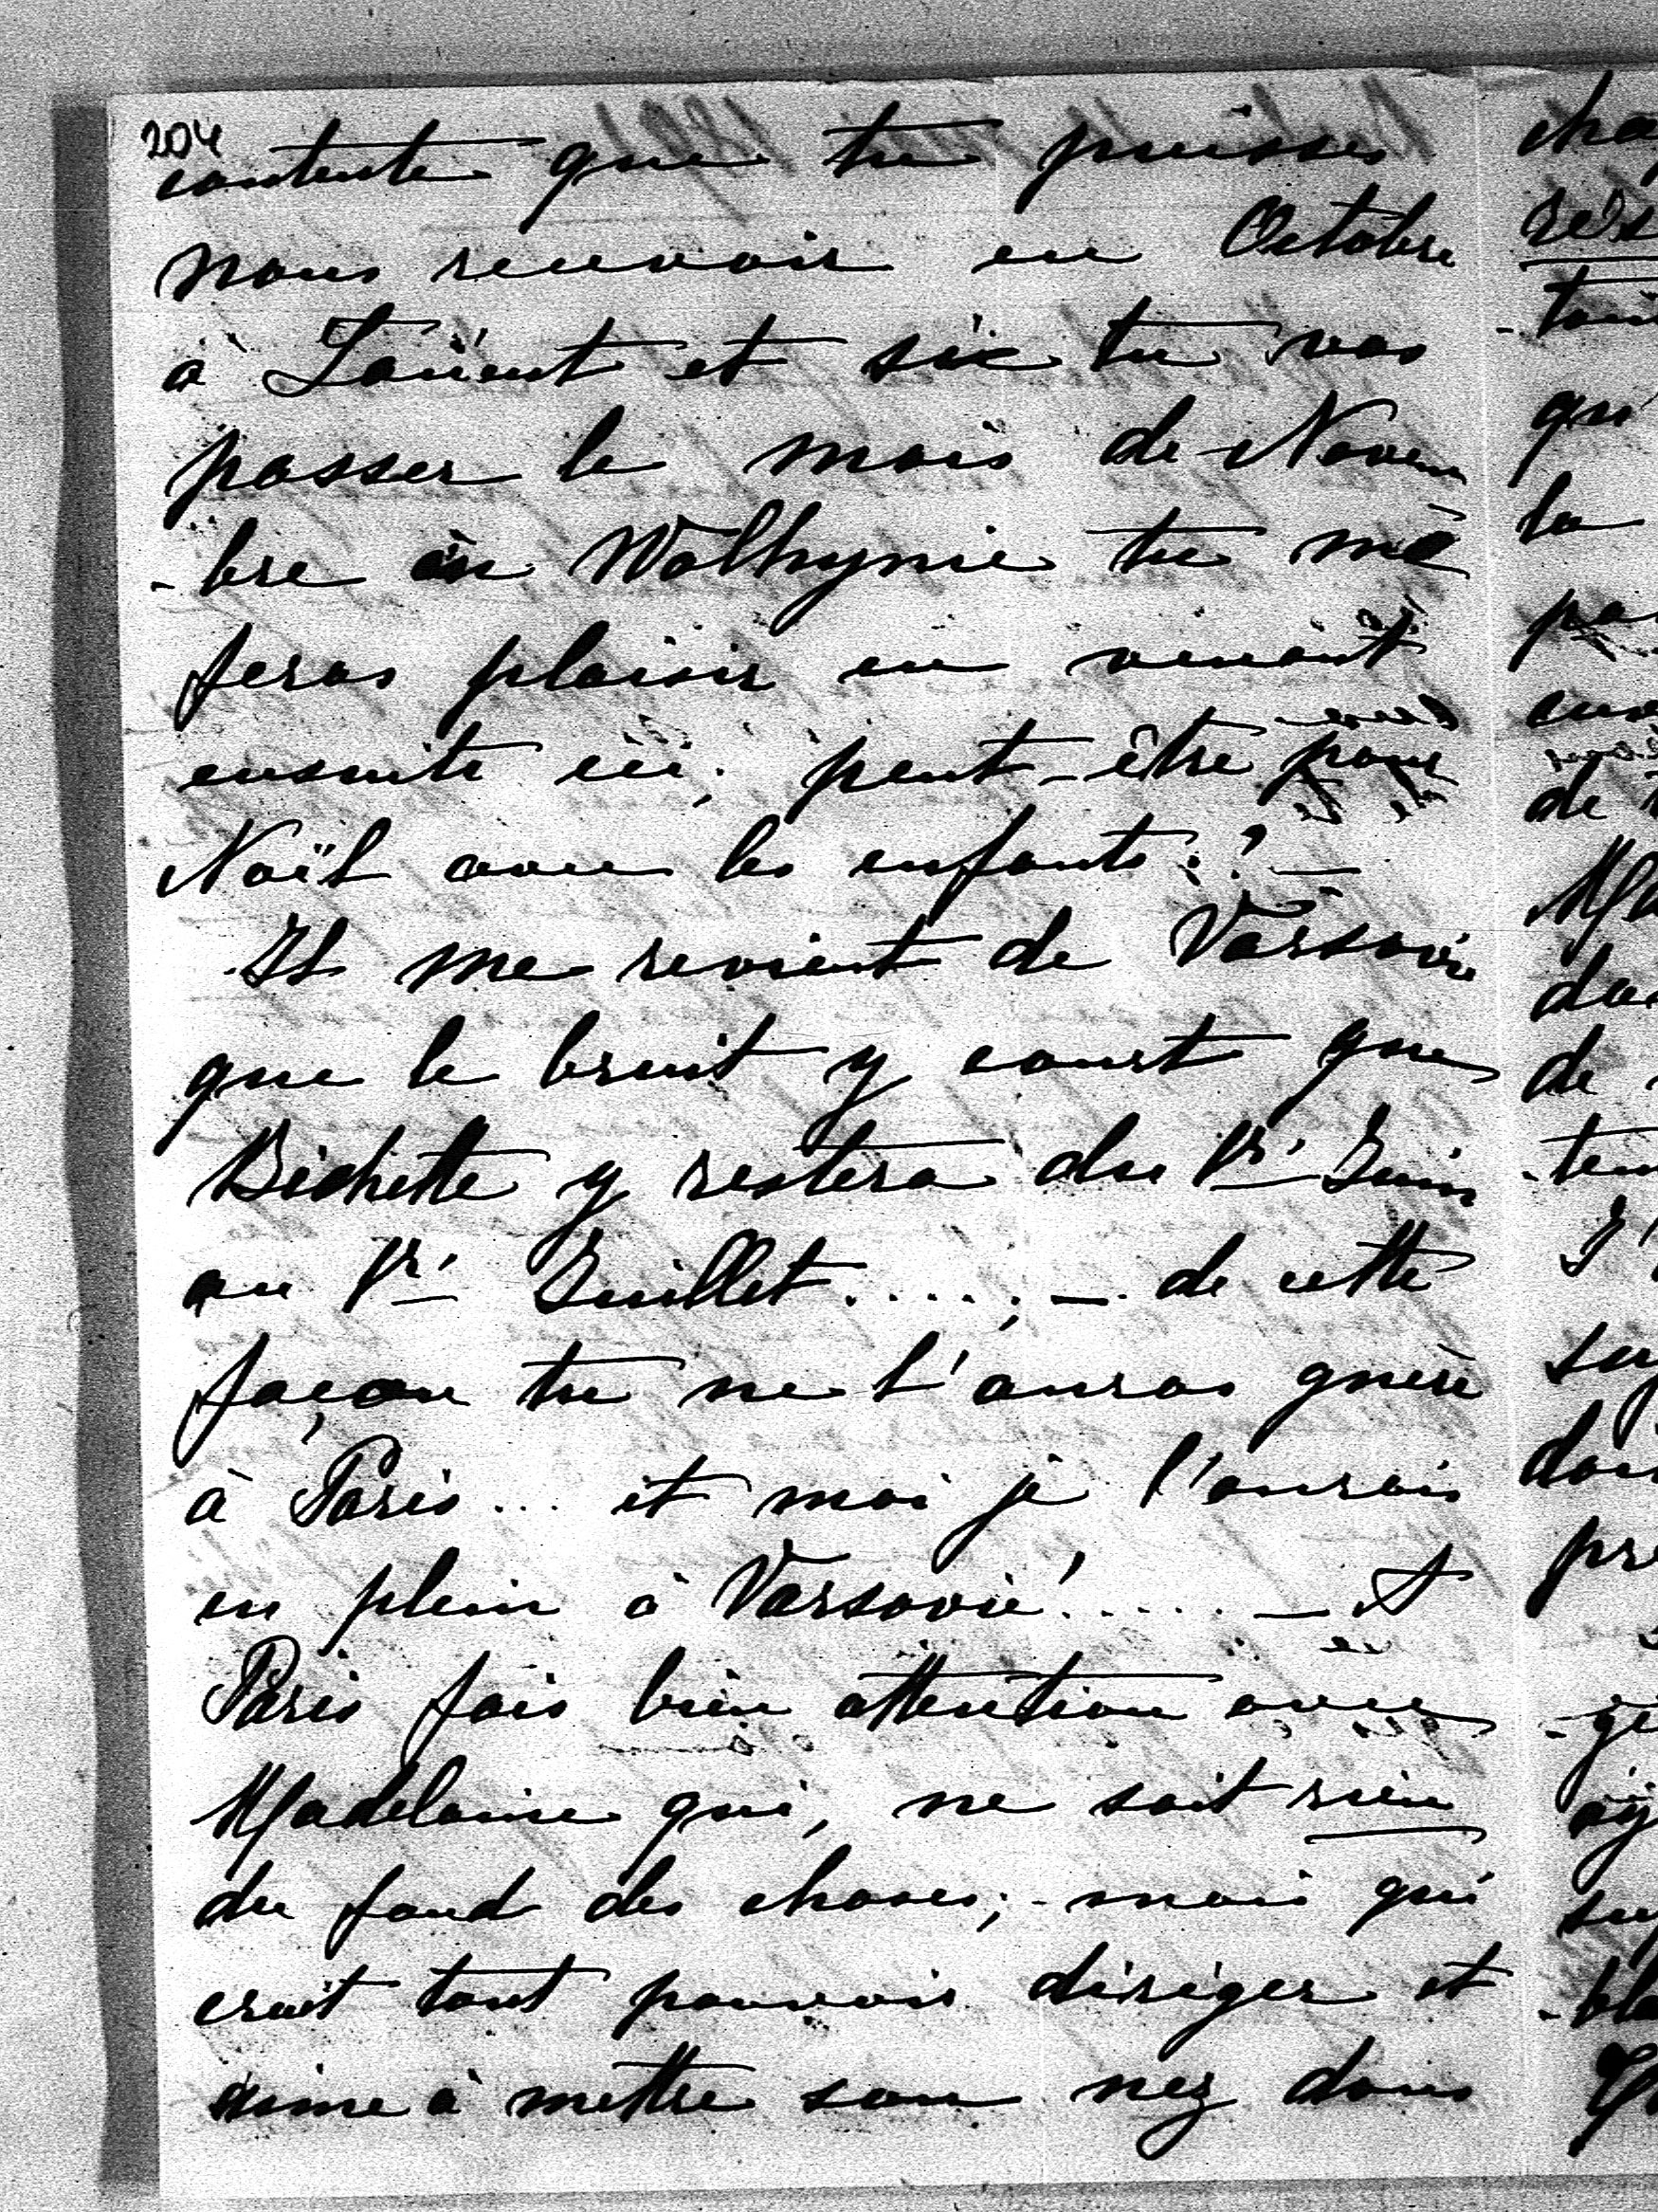 204
contente que tu puisses
nous recevoir en Octobre
à Lancut et si tu vas
passer le mois de Novem
-bre en Wolhynie tu me
feras plaisir en venant
ensuite ici, peut-être pour
Noël avec les enfants:? —
Il me revient de Varsovie
que le bruit y court que
Bichette y restera du 1r Juin
au 1r Juillet.....; — de cette
façon tu ne l'auras guère
à Paris... et moi je l'aurais
en plein à Varsovie!..... — A
Paris fais bien attention avec
Madelaine qui, ne sait rien
du fond des choses; - mais qui
croit tout pouvoir diriger et
aime à mettre son nez dans